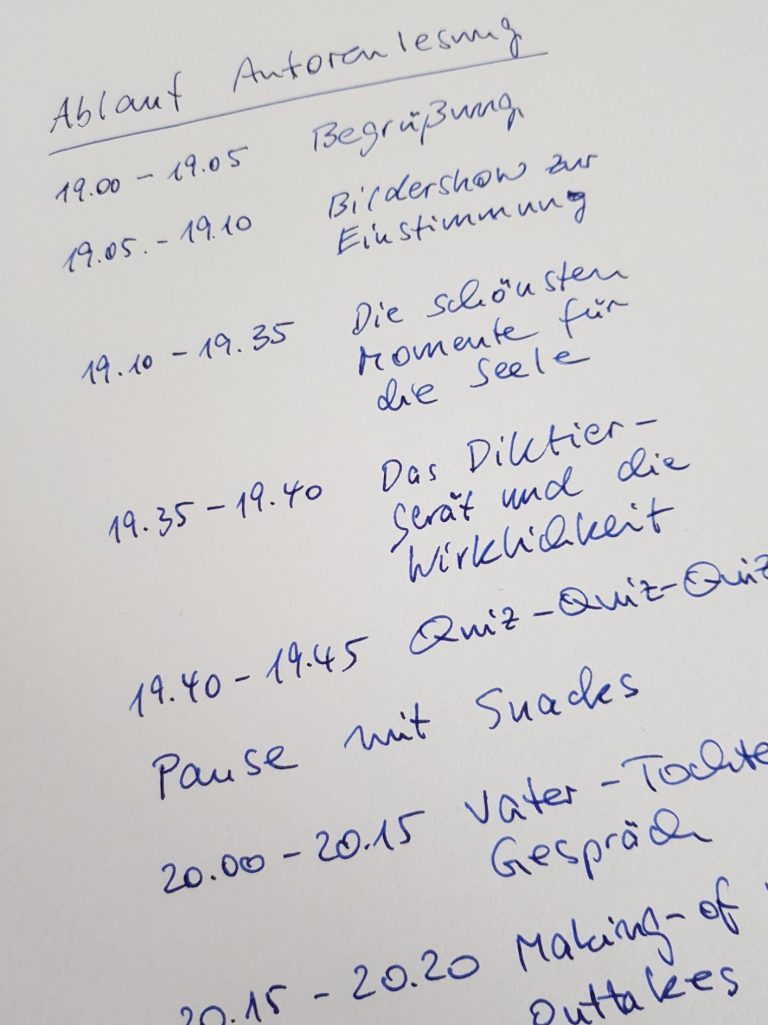 Ablauf Autorenlesung
19.00 - 19.05 Begrüßung
19.05. - 19.10 Bildershow zur
Einstimmung
19.10 - 19.35 Die schönsten
Momente für
die Seele
19.35 - 19.40 Das Diktier-
gerät und die
Wirklichkeit
19.40 - 19.45 Quiz-Quiz-Quiz
Pause mit Snacks
20.00 - 20.15 Vater-Tochte
Gespräch
20.15 - 20.20 Making-of
Outtakes